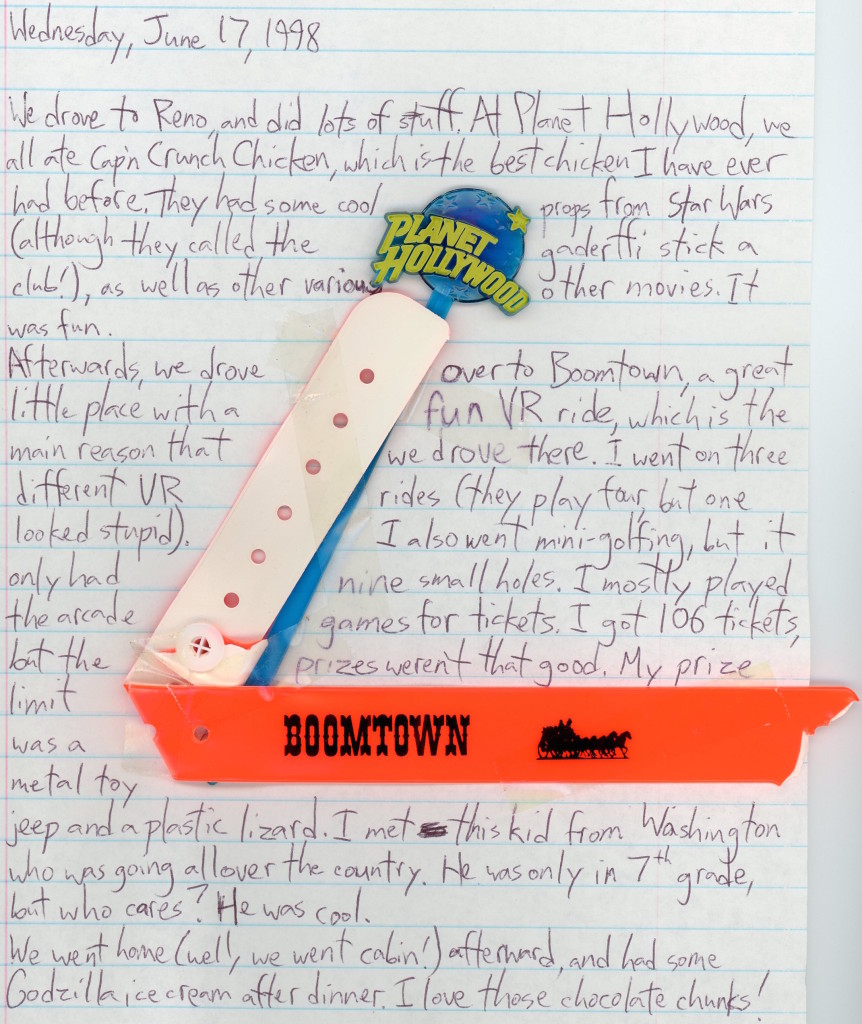 Wednesday, June 17, 1998
We drove to Reno, and did lots of stuff. At Planet Hollywood, we
all ate Cap'n Crunch Chicken, which is the best chicken I have ever
had before. They had some cool props from Star Wars
PLANET HOLLYWOOD
(although they called the gaderffi stick a
club!), as well as other various other movies. It
was fun.
Afterwards, we drove over to Boomtown, a great
little place with a fun VR ride, which is the
main reason that we drove there. I went on three
different VR rides (they play four, but one
looked stupid). I also went mini-golfing, but it
only had nine small holes. I mostly played
the arcade games for tickets. I got 106 tickets,
but the prizes weren't that good. My prize
limit
BOOMTOWN
was a
metal toy
jeep and a plastic lizard. I met this kid from Washington
who was going all over the country. He was only in 7th grade,
but who cares? He was cool.
We went home (well, we went cabin!) afterward, and had some
Godzilla ice cream after dinner. I love those chocolate chunks!